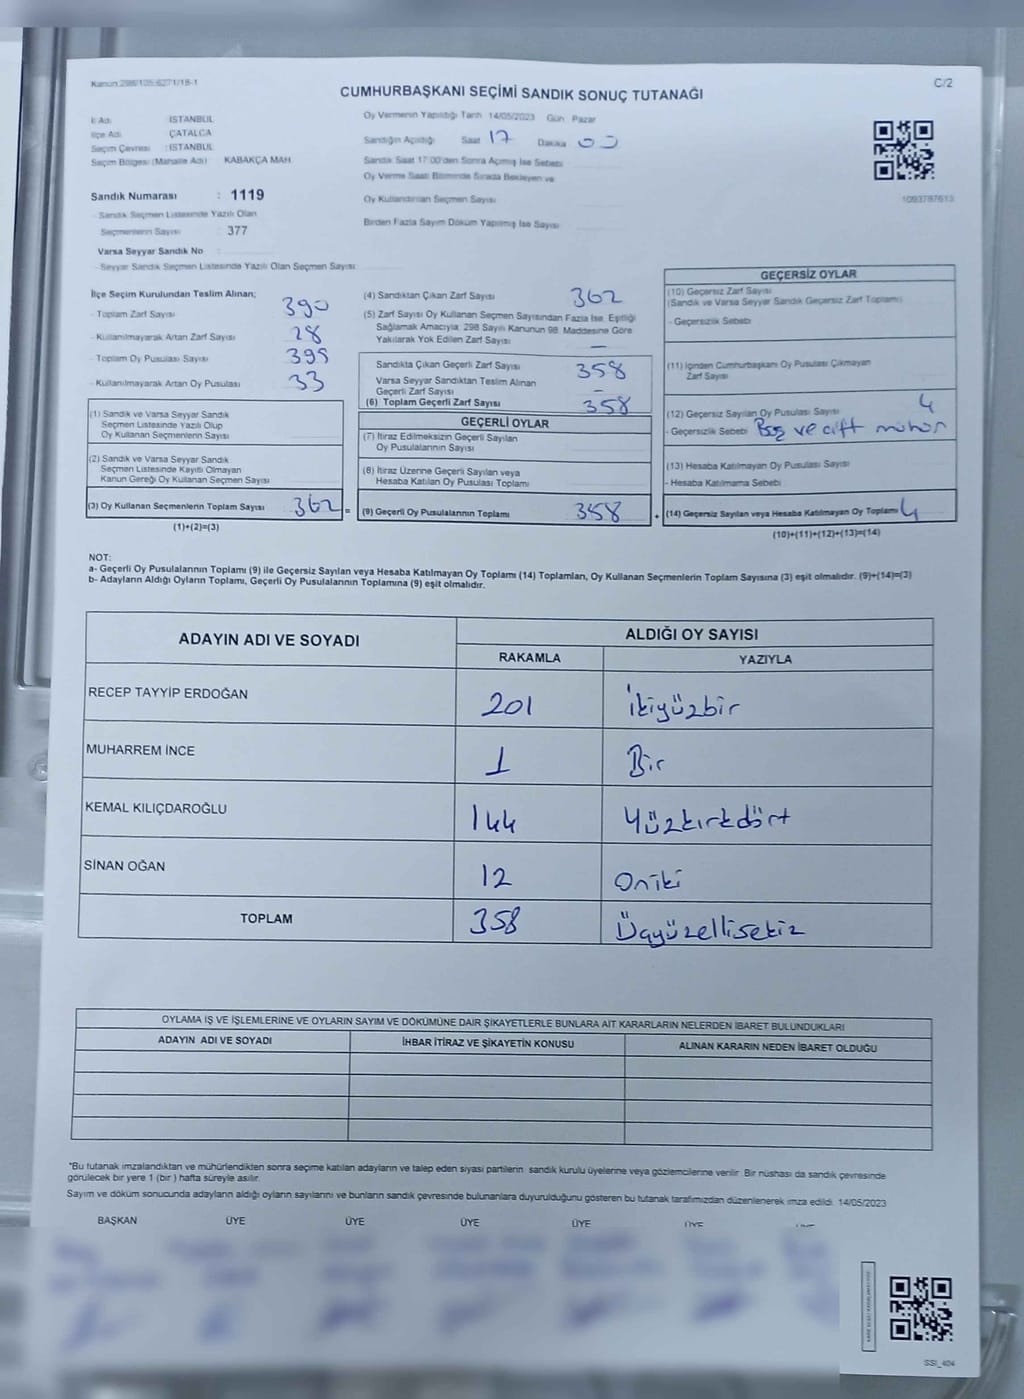 Kanun:298/105-6271/18-1
C/2
CUMHURBAŞKANI SEÇİMİ SANDIK SONUÇ TUTANAĞI
İl Adı : İSTANBUL
İlçe Adı : ÇATALCA
Seçim Çevresi : İSTANBUL
Seçim Bölgesi (Mahalle Adı) : KABAKÇA MAH.
Sandık Numarası : 1119
- Sandık Seçmen Listesinde Yazılı Olan
Seçmenlerin Sayısı : 377
Varsa Seyyar Sandık No :
- Seyyar Sandık Seçmen Listesinde Yazılı Olan Seçmen Sayısı
Oy Vermenin Yapıldığı Tarih : 14/05/2023 Gün : Pazar
Sandığın Açıldığı Saat 17 Dakika 00
Sandık Saat 17:00'den Sonra Açılmış İse Sebebi
Oy Verme Saati Bitiminde Sırada Bekleyen ve
Oy Kullandırılan Seçmen Sayısı
Birden Fazla Sayım Döküm Yapılmış İse Sayısı
1093787613
İlçe Seçim Kurulundan Teslim Alınan;
- Toplam Zarf Sayısı 390
- Kullanılmayarak Artan Zarf Sayısı 28
- Toplam Oy Pusulası Sayısı 395
- Kullanılmayarak Artan Oy Pusulası 33
(1) Sandık ve Varsa Seyyar Sandık
Seçmen Listesinde Yazılı Olup
Oy Kullanan Seçmenlerin Sayısı
(2) Sandık ve Varsa Seyyar Sandık
Seçmen Listesinde Kayıtlı Olmayan
Kanun Gereği Oy Kullanan Seçmen Sayısı
(3) Oy Kullanan Seçmenlerin Toplam Sayısı 362 =
(1)+(2)=(3)
(4) Sandıktan Çıkan Zarf Sayısı 362
(5) Zarf Sayısı Oy Kullanan Seçmen Sayısından Fazla İse, Eşitliği
Sağlamak Amacıyla, 298 Sayılı Kanunun 98. Maddesine Göre
Yakılarak Yok Edilen Zarf Sayısı —
Sandıkta Çıkan Geçerli Zarf Sayısı 358
Varsa Seyyar Sandıktan Teslim Alınan
Geçerli Zarf Sayısı –
(6) Toplam Geçerli Zarf Sayısı 358
GEÇERLİ OYLAR
(7) İtiraz Edilmeksizin Geçerli Sayılan
Oy Pusulalarının Sayısı
(8) İtiraz Üzerine Geçerli Sayılan veya
Hesaba Katılan Oy Pusulası Toplamı
(9) Geçerli Oy Pusulalarının Toplamı 358 +
GEÇERSİZ OYLAR
(10) Geçersiz Zarf Sayısı
(Sandık ve Varsa Seyyar Sandık Geçersiz Zarf Toplamı)
- Geçersizlik Sebebi
(11) İçinden Cumhurbaşkanı Oy Pusulası Çıkmayan
Zarf Sayısı
(12) Geçersiz Sayılan Oy Pusulası Sayısı 4
- Geçersizlik Sebebi ve çift mühür
(13) Hesaba Katılmayan Oy Pusulası Sayısı
- Hesaba Katılmama Sebebi
(14) Geçersiz Sayılan veya Hesaba Katılmayan Oy Toplamı 4
(10)+(11)+(12)+(13)=(14)
NOT:
a- Geçerli Oy Pusulalarının Toplamı (9) ile Geçersiz Sayılan veya Hesaba Katılmayan Oy Toplamı (14) Toplamları, Oy Kullanan Seçmenlerin Toplam Sayısına (3) eşit olmalıdır. (9)+(14)=(3)
b- Adayların Aldığı Oyların Toplamı, Geçerli Oy Pusulalarının Toplamına (9) eşit olmalıdır.
ADAYIN ADI VE SOYADI
ALDIĞI OY SAYISI
RAKAMLA YAZIYLA
RECEP TAYYİP ERDOĞAN 201 İkiyüzbir
MUHARREM İNCE 1 Bir
KEMAL KILIÇDAROĞLU 144 Yüzkırkdört
SİNAN OĞAN 12 Oniki
TOPLAM 358 Üçyüzellisekiz
OYLAMA İŞ VE İŞLEMLERİNE VE OYLARIN SAYIM VE DÖKÜMÜNE DAİR ŞİKAYETLERLE BUNLARA AİT KARARLARIN NELERDEN İBARET BULUNDUKLARI
ADAYIN ADI VE SOYADI İHBAR İTİRAZ VE ŞİKAYETİN KONUSU ALINAN KARARIN NEDEN İBARET OLDUĞU
*Bu tutanak imzalandıktan ve mühürlendikten sonra seçime katılan adayların ve talep eden siyasi partilerin sandık kurulu üyelerine veya gözlemcilerine verilir. Bir nüshası da sandık çevresinde
görülecek bir yere 1 (bir ) hafta süreyle asılır.
Sayım ve döküm sonucunda adayların aldığı oyların sayılarını ve bunların sandık çevresinde bulunanlara duyurulduğunu gösteren bu tutanak tarafımızdan düzenlenerek imza edildi. 14/05/2023
BAŞKAN ÜYE ÜYE ÜYE ÜYE ÜYE
SSI_404